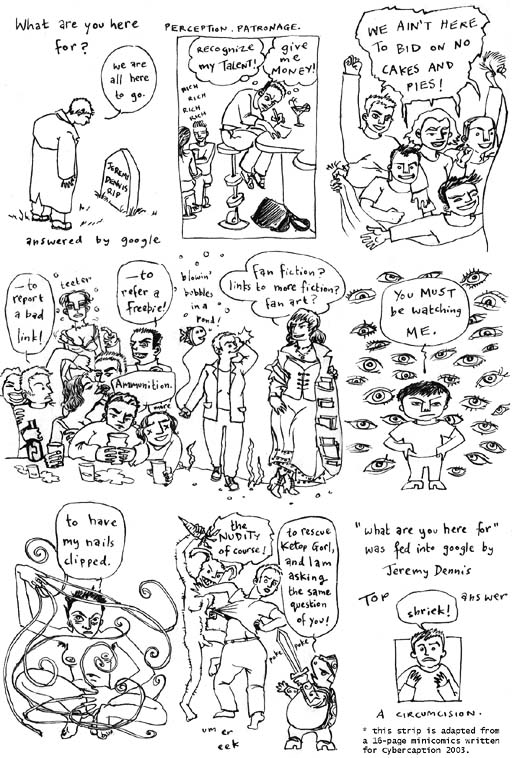 What are you here
for?
we are
all here
to go.
JEREMY
DENNIS
RIP
answered by google
PERCEPTION. PATRONAGE.
RECOGNIZE
MY TALENT!
give
me
MONEY!
RICH
RICH
RICH
RICH
WE AIN'T HERE
TO BID ON NO
CAKES AND
PIES!
— to
report
a bad
link!
teeter
— to
refer a
freebie!
Ammunition.
more
blowin'
bubbles
in a
pond!
Fan fiction?
links to more fiction?
fan art?
YOU MUST
be watching
ME.
to have
my nails
clipped.
the
NUDITY
of course!
um er
eek
to rescue
Ketop Gorl,
and I am
asking
the same
question
of you!
poke poke
"What are you here for"
was fed into google by
Jeremy Dennis
TOP answer
shriek!
A CIRCUMCISION.
* this strip is adapted from
a 16-page minicomics written
for Cybercaption 2003.